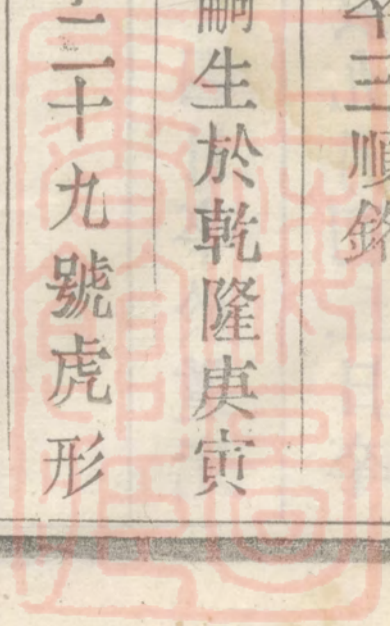 三順
嗣生於乾隆庚寅
二十九號虎形